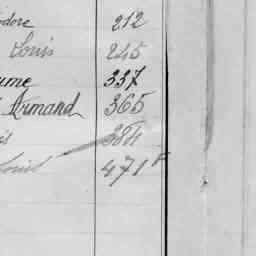 odore 212
Louis 245
ume 337
Armand 365
is 384
Louis 471F